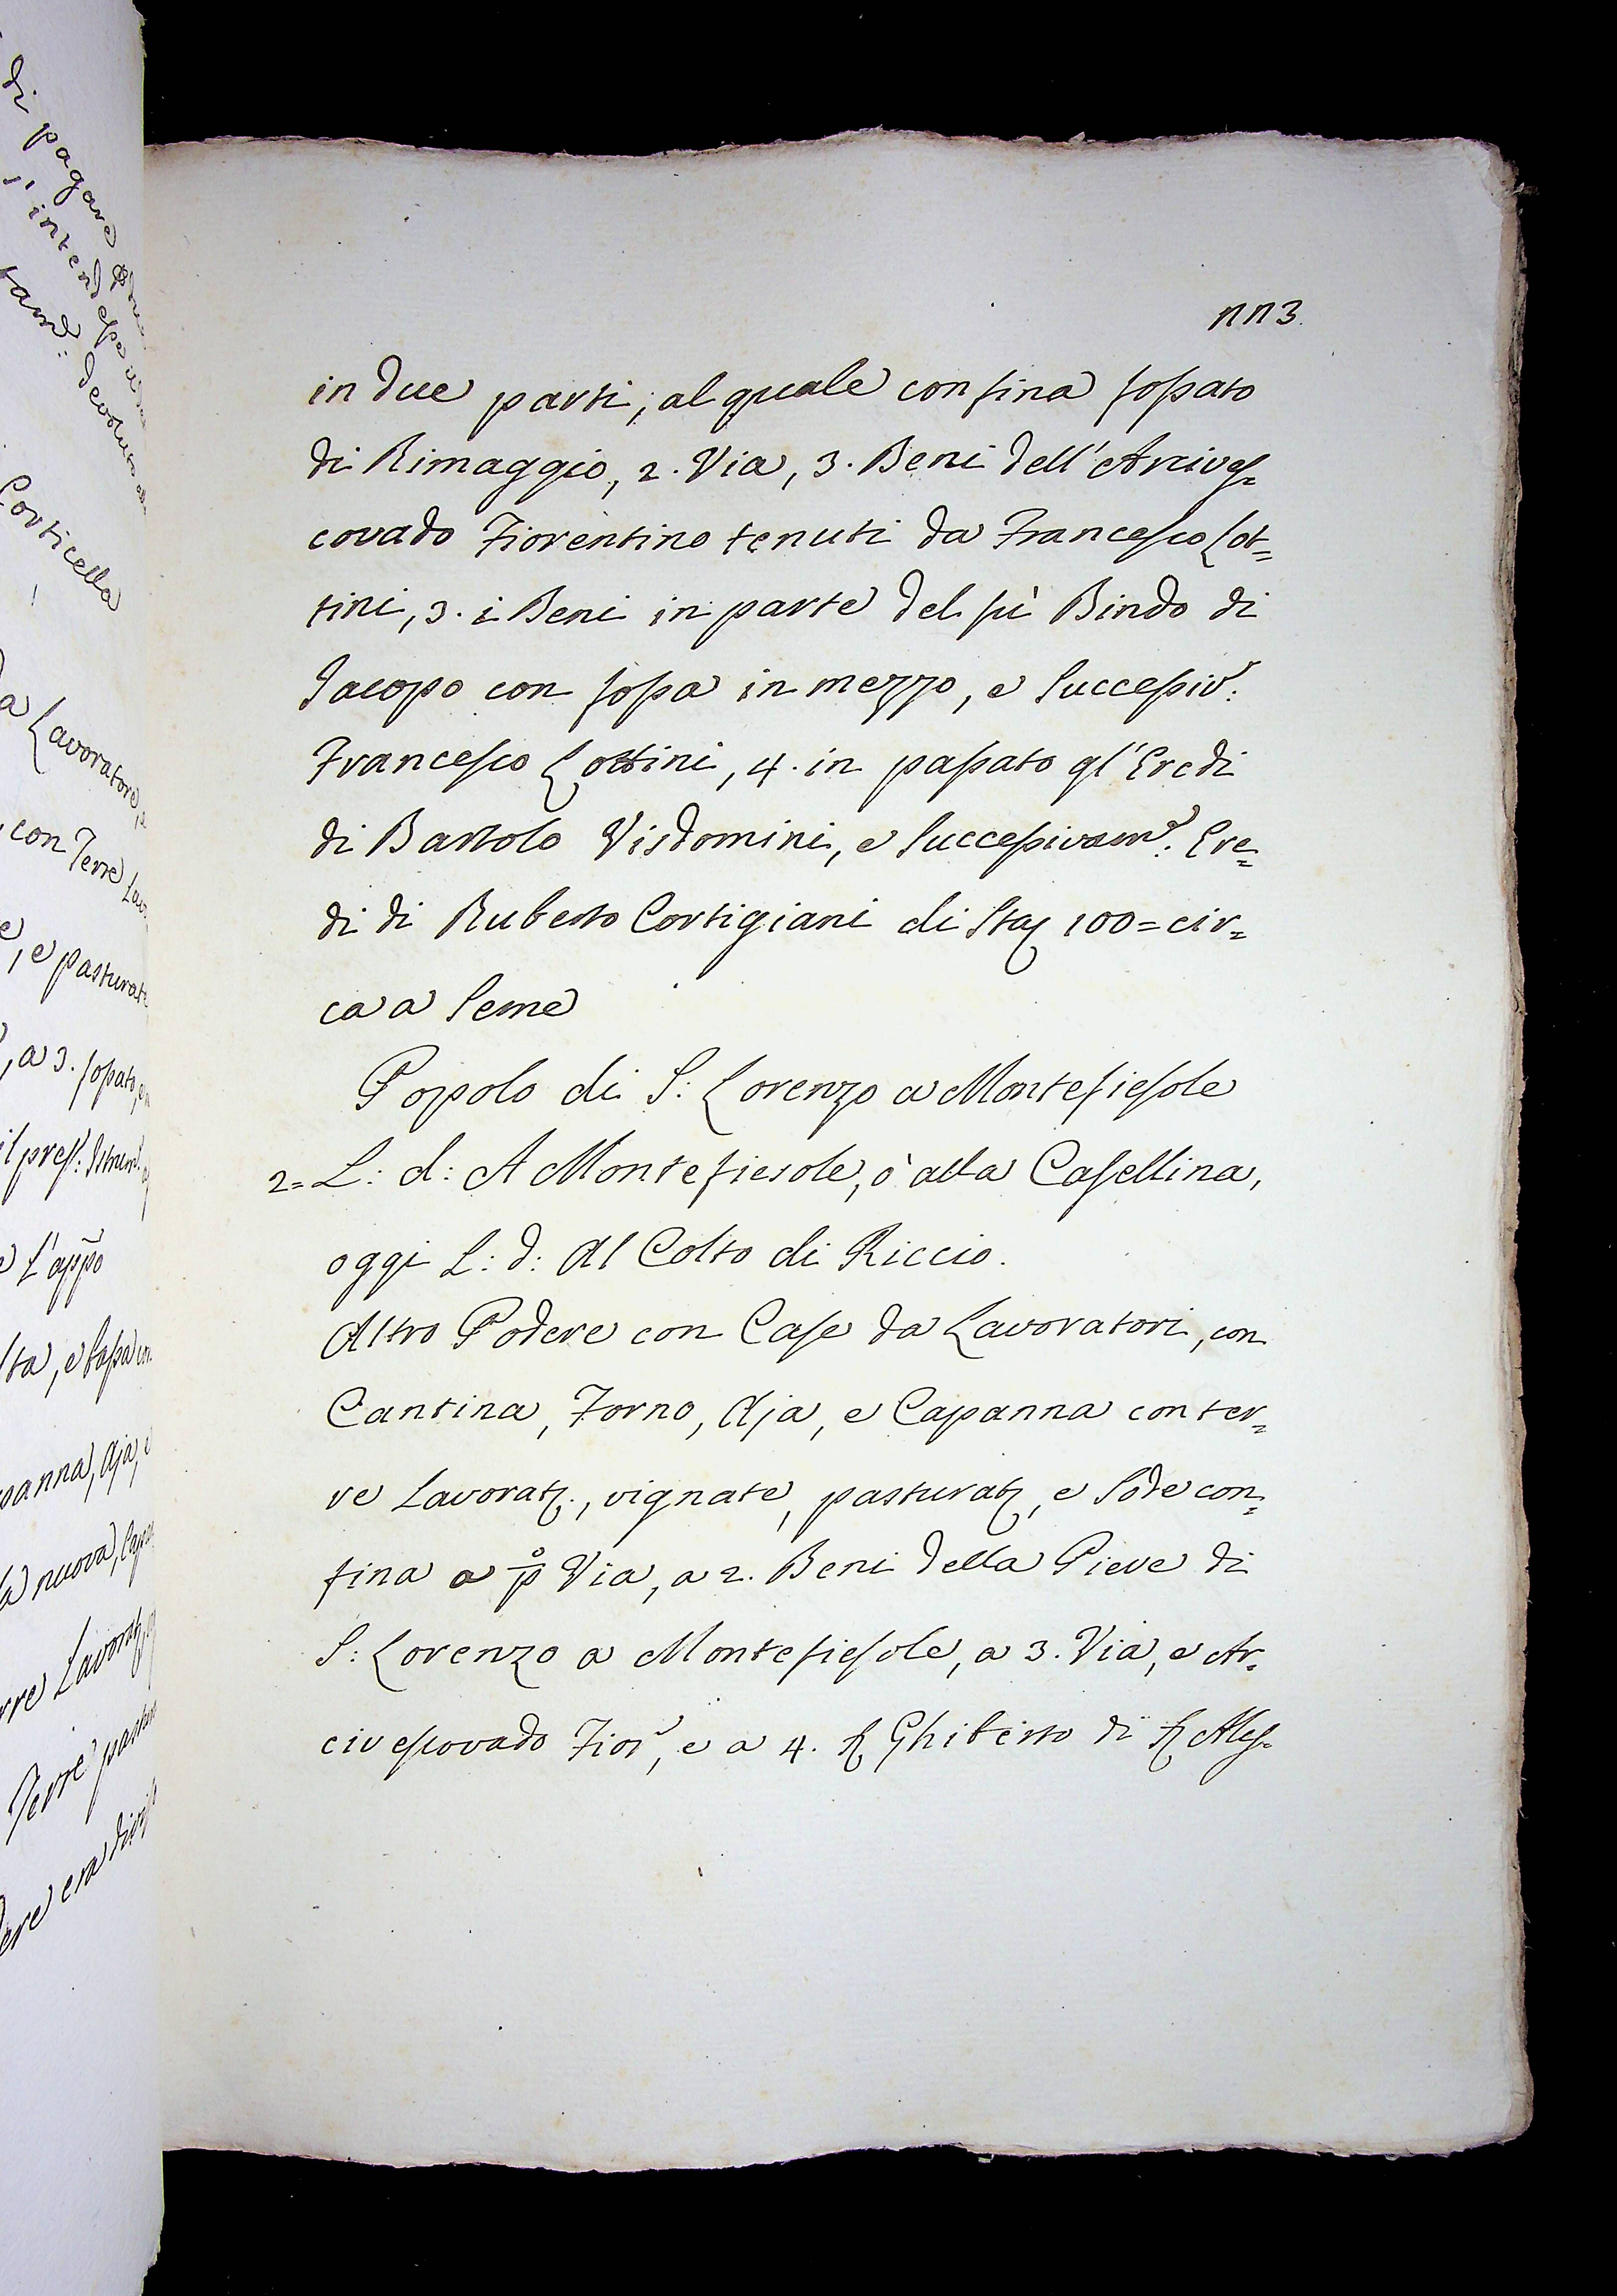 113.
in due parti, al quale confina fossato
di Rimaggio, 2. Via, 3. Beni dell'Arcives=
covado Fiorentino tenuti da Francesco Lot=
tini, 3. i Beni in parte del fù Bindo di
Jacopo con fossa in mezzo, e Successiv:
Francesco Lottini, 4. in passato gl'Eredi
di Bartolo Visdomini, e Successivam: Ere=
di di Ruberto Cortigiani di Sta 100= cir=
ca a Seme
Popolo di S: Lorenzo a Montefiesole
2= L: d: A Montefiesole, ò alla Casellina,
oggi L: d: Al Colto di Riccio.
Altro Podere con Case da Lavoratori, con
Cantina, Forno, Aja, e Capanna con ter=
re Lavorat:, vignate, pasturat, e Sode con=
fina a pº Via, a 2. Beni della Pieve di
S: Lorenzo a Montefiesole, a 3. Via, e Ar=
civescovado Fior, e a 4. Ghiberto di Ales=
di pagare
Corticella
Lavoratore,
con Terre Lav
, e pasturat
, a 3. fossato,
e l'appo
ta, e bassa con
panna, Aja, e
a nuova, Cap
rre Lavorat
Terre pastur
ere era divi